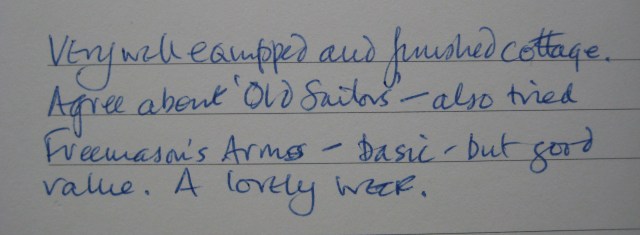 Very well equipped and furnished cottage.
Agree about 'Old Sailors' - also tried
Freemason's Arms - basic - but good
value. A lovely week.